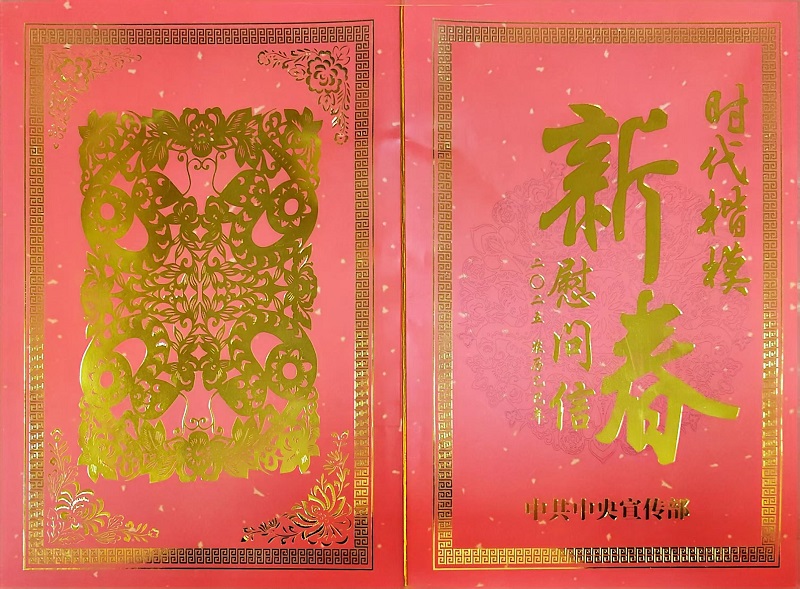 时代楷模
新春
慰问信
二〇二五 乙巳年
中共中央宣传部